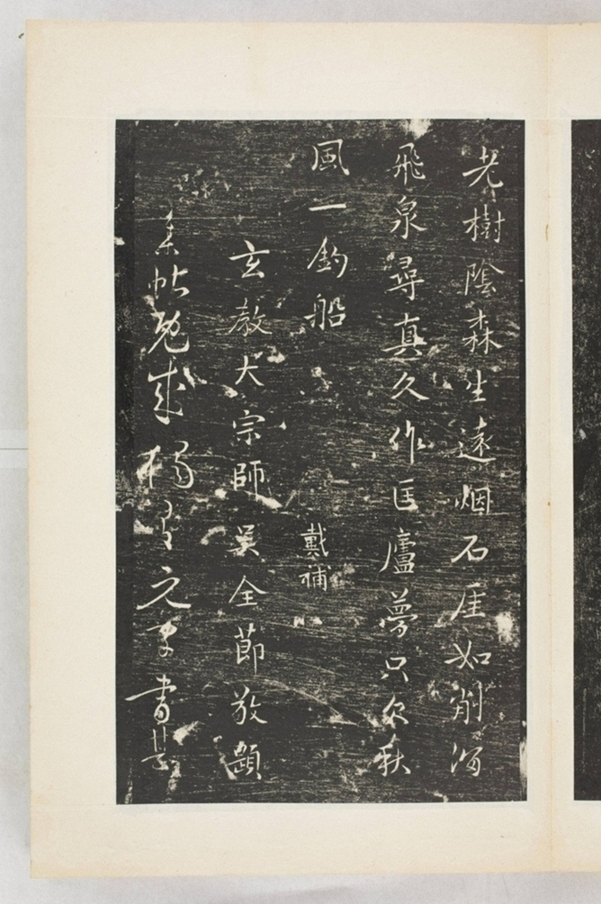 老樹陰森生遠烟石厓如削瀉
飛泉尋真久作匡廬夢只欠秋
風一釣船
戴補
玄教大宗師吳全節敬題
帖